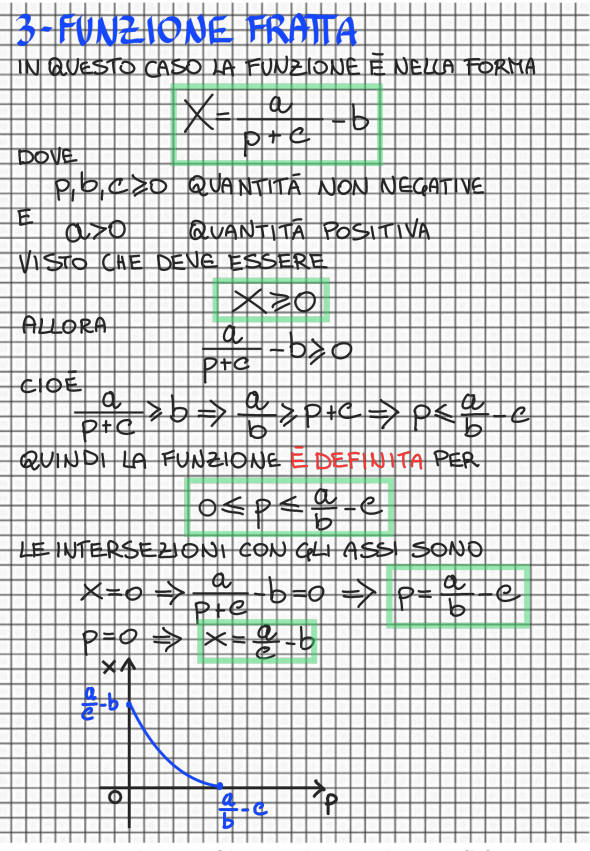 3-FUNZIONE FRATTA
IN QUESTO CASO LA FUNZIONE È NELLA FORMA
X = a/(p+c) - b
DOVE
p, b, c ⩾ 0 QUANTITÀ NON NEGATIVE
E a > 0 QUANTITÀ POSITIVA
VISTO CHE DEVE ESSERE
X ⩾ 0
ALLORA
a/(p+c) - b ⩾ 0
CIOÈ
a/(p+c) ⩾ b ⇒ a/b ⩾ p+c ⇒ p ⩽ a/b - c
QUINDI LA FUNZIONE È DEFINITA PER
0 ⩽ p ⩽ a/b - c
LE INTERSEZIONI CON GLI ASSI SONO
X=0 ⇒ a/(p+c) - b = 0 ⇒ p = a/b - c
p=0 ⇒ X = a/c - b
X
a/c - b
0
p
a/b - c